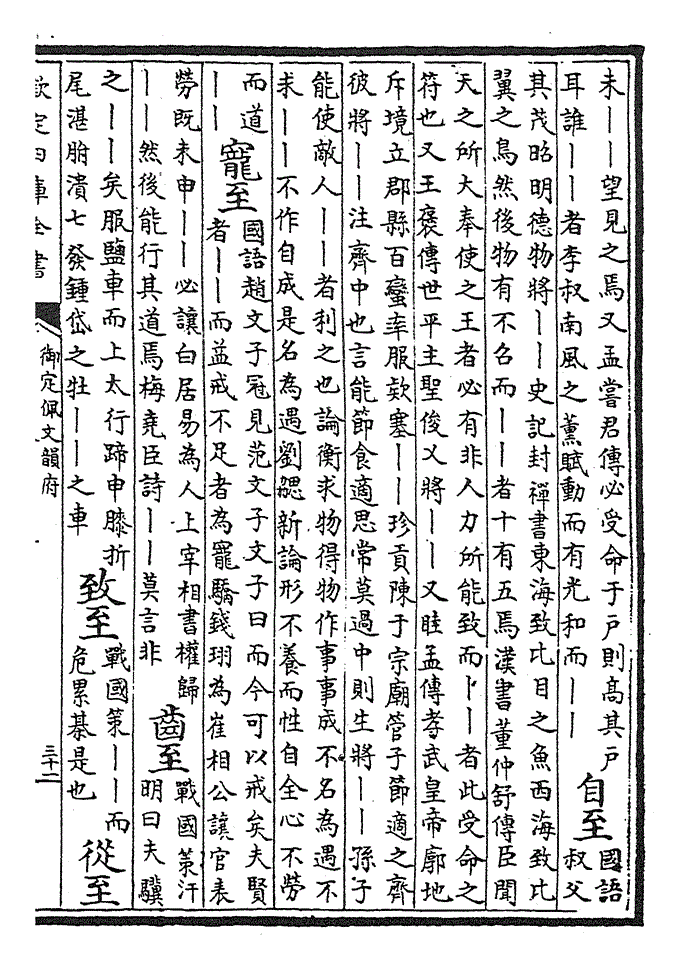 未｜｜望見之焉又孟嘗君傳必受命于戶則髙其戶
耳誰｜｜者李叔南風之薰賦動而有光和而｜｜
自至
國語
叔父
其茂昭明德物將｜｜史記封禪書東海致比目之魚西海致比
翼之鳥然後物有不召而｜｜者十有五焉漢書董仲舒傳臣聞
天之所大奉使之王者必有非人力所能致而｜｜者此受命之
符也又王褒傳世平主聖俊乂將｜｜又眭孟傳孝武皇帝廓地
斥境立郡縣百蠻率服欵塞｜｜珍貢陳于宗廟管子節適之齊
彼將｜｜注齊中也言能節食適思常莫過中則生將｜｜孫子
能使敵人｜｜者利之也論衡求物得物作事事成不名為遇不
求｜｜不作自成是名為遇劉勰新論形不養而性自全心不勞
而道
｜｜
寵至
國語趙文子冠見范文子文子曰而今可以戒矣夫賢
者｜｜而益戒不足者為寵驕錢珝為崔相公讓官表
勞既未申｜｜必讓白居易為人上宰相書權歸
｜｜然後能行其道焉梅堯臣詩｜｜莫言非
齒至
戰國策汗
明曰夫驥
之｜｜矣服鹽車而上太行蹄申膝折
尾湛胕潰七發鍾岱之牡｜｜之車
致至
戰國策｜｜而
危累棊是也
從至
欽定四庫全書
御定佩文韻府
三十二